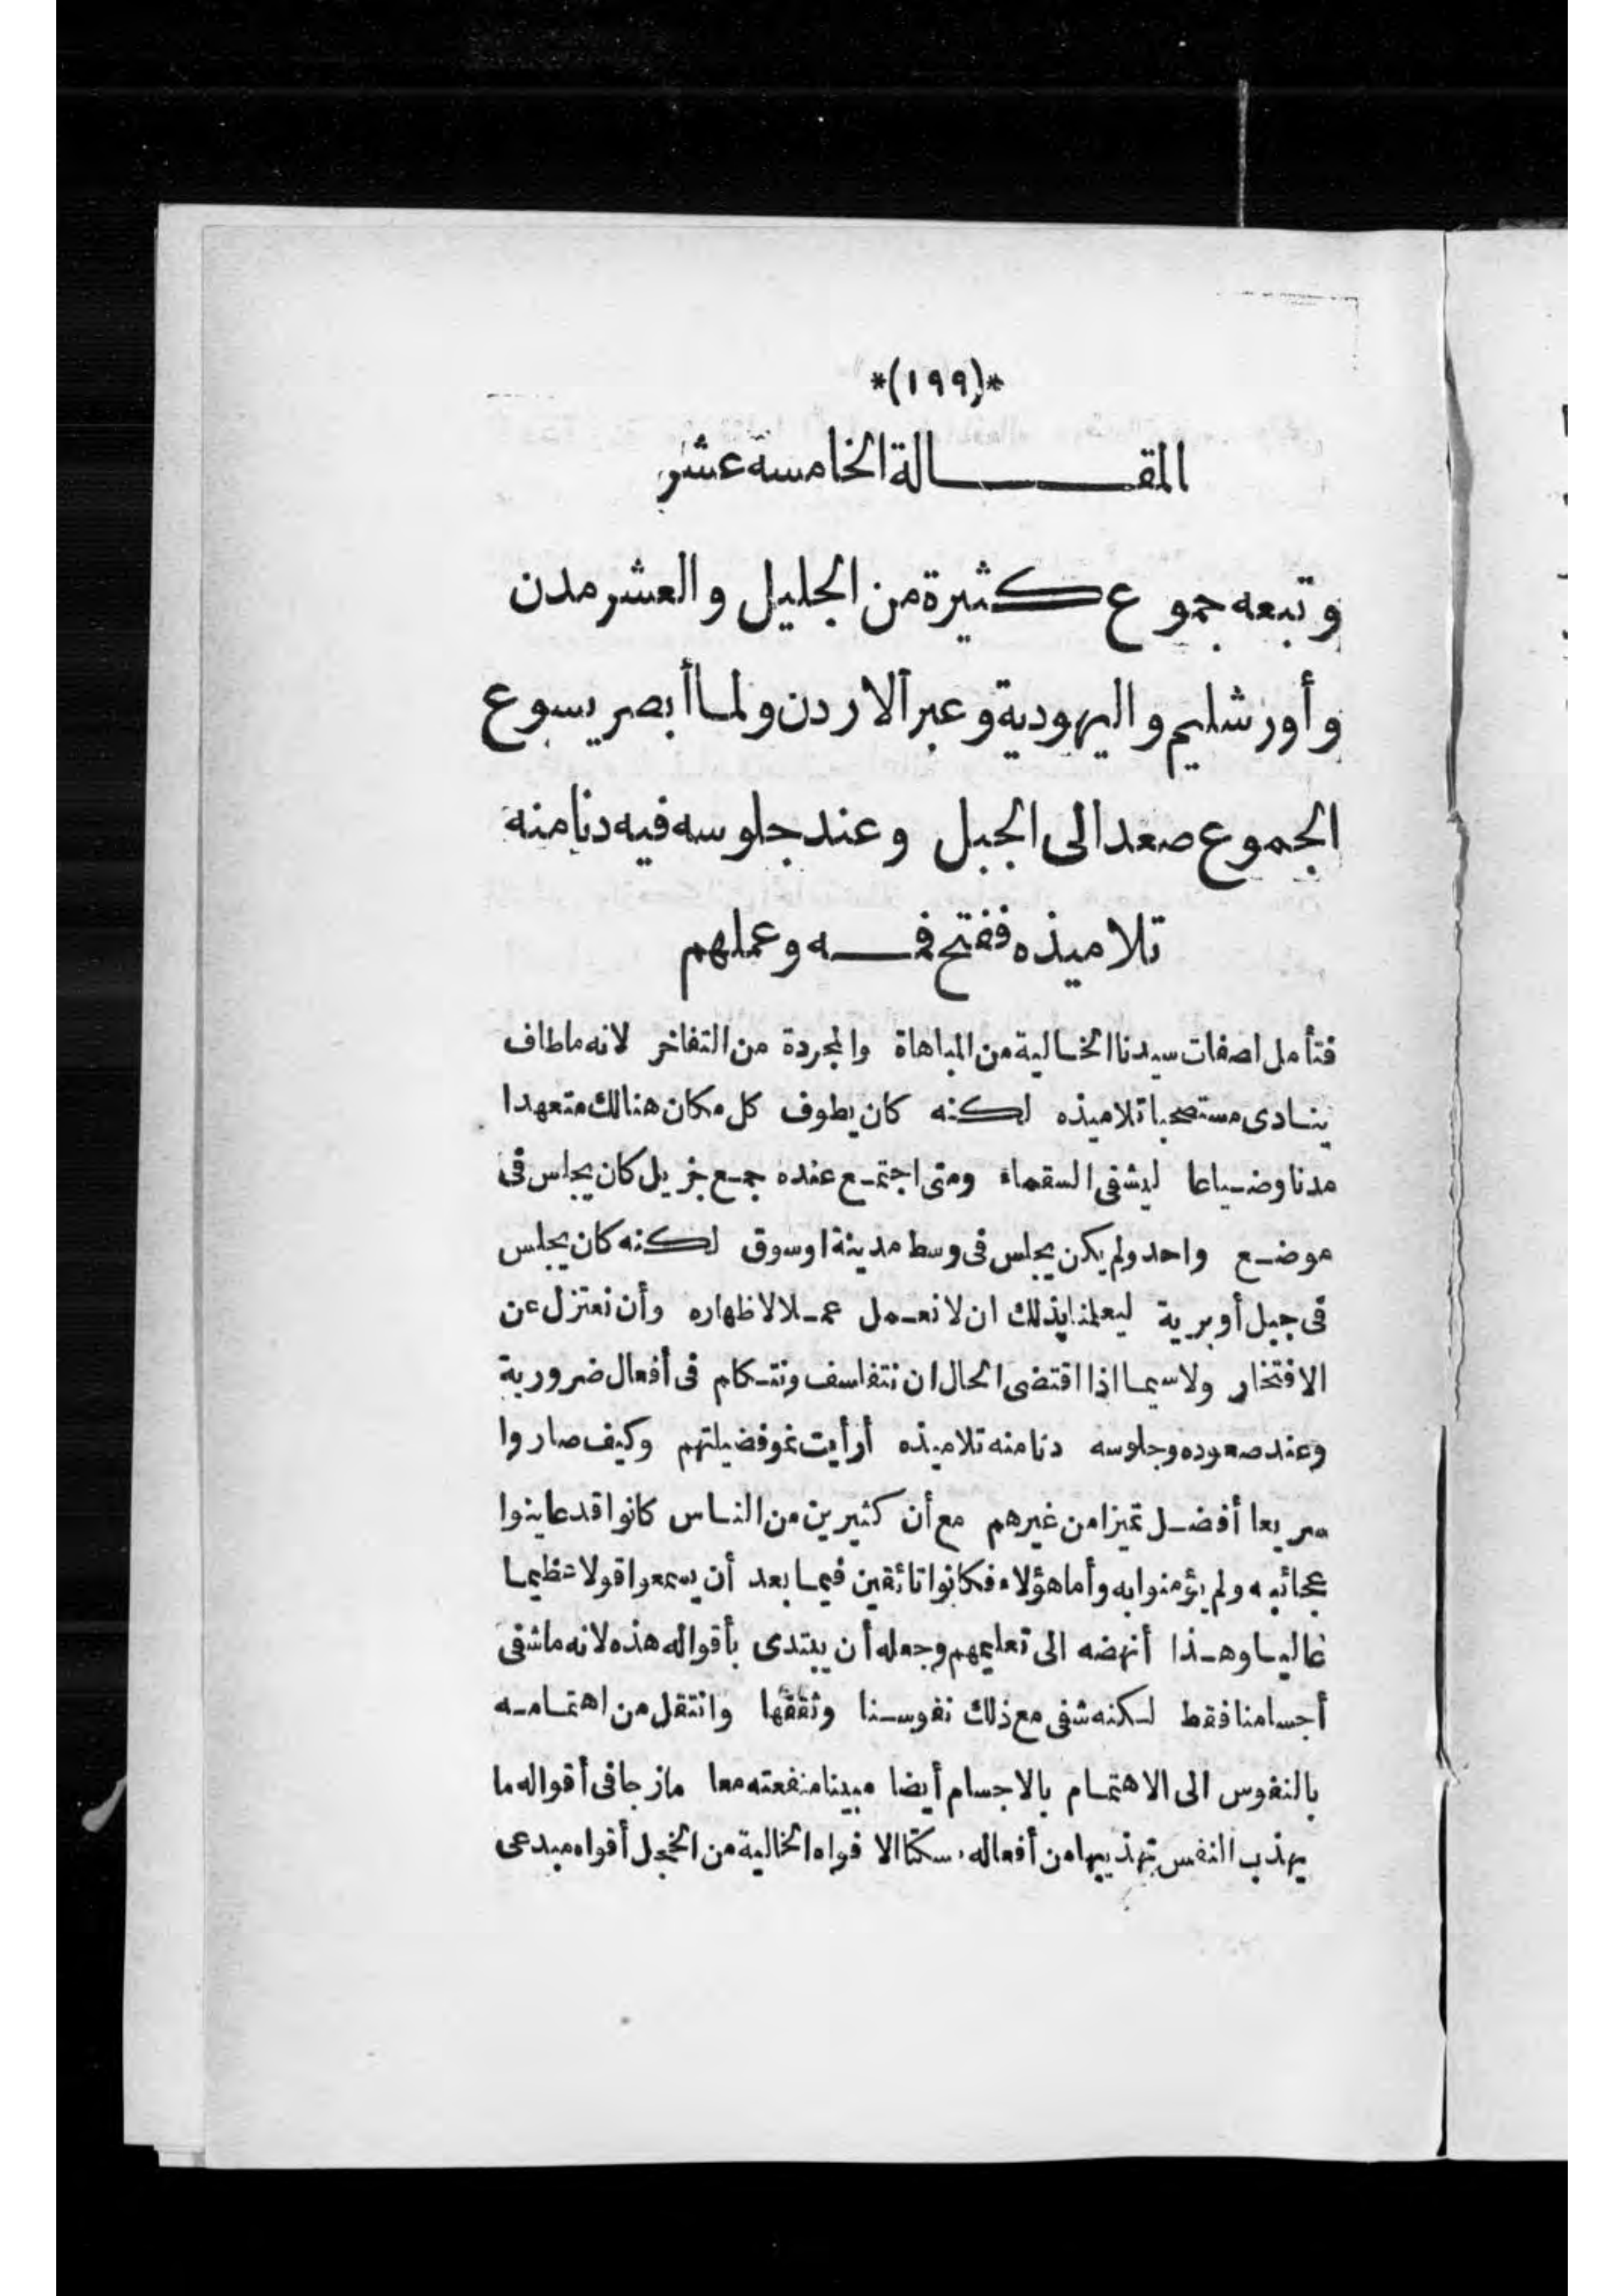 *(١٩٩)*
المقالة الخامسة عشر
وتبعه جموع كثيرة من الجليل والعشر مدن
وأورشليم واليهودية وعبر الاردن ولما أبصر يسوع
الجموع صعد الى الجبل وعند جلوسه فيه دنا منه
تلاميذه ففتح فمه وعملهم
فتأمل اصفات سيدنا الخالية من المباهاة والمجردة من التفاخر لانه ما طاف
ينادى مستصحبا تلاميذه لكنه كان يطوف كل مكان هنالك متعهدا
مدنا وضياعا ليشفى السقماء ومتى اجتمع عنده جمع جزيل كان يجلس فى
موضع واحد ولم يكن يجلس فى وسط مدينة اوسوق لكنه كان يجلس
فى جبل أو برية ليعلمنا بذلك ان لا نعمل عملا لاظهاره وأن نعتزل عن
الافتخار ولاسيما اذا اقتضى الحال ان نتفلسف ونتكلم فى أفعال ضرورية
وعند صعوده وجلوسه دنا منه تلاميذه أرأيت نمو فضيلتهم وكيف صاروا
سريعا أفضل تميزا من غيرهم مع أن كثيرين من الناس كانوا قد عاينوا
عجائبه ولم يؤمنوا به وأما هؤلاء فكانوا تائقين فيما بعد أن يسمعوا قولا عظيما
عاليا وهذا أنهضه الى تعليمهم وجعله أن يبتدى بأقواله هذه لانه ما شفى
أجسامنا فقط لكنه شفى مع ذلك نفوسنا وثقفها وانتقل من اهتمامه
بالنفوس الى الاهتمام بالاجسام أيضا مبينا منفعته معا مازجا فى أقواله ما
يهذب النفس تهذيبها من أفعاله مسكتا الافواه الخالية من الخجل أفواه مبدعى